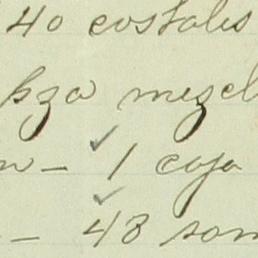 40 costales
pza mezcl
n — 1 caja
— 48 som